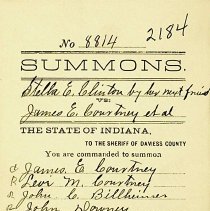 2184
No 8814
SUMMONS.
Stella E. Clinton by her next friend
vs.
James E. Courtney et al
THE STATE OF INDIANA,
TO THE SHERIFF OF DAVIESS COUNTY
You are commanded to summon
James E. Courtney
Levi M. Courtney
John C. Billheimer
John Downey